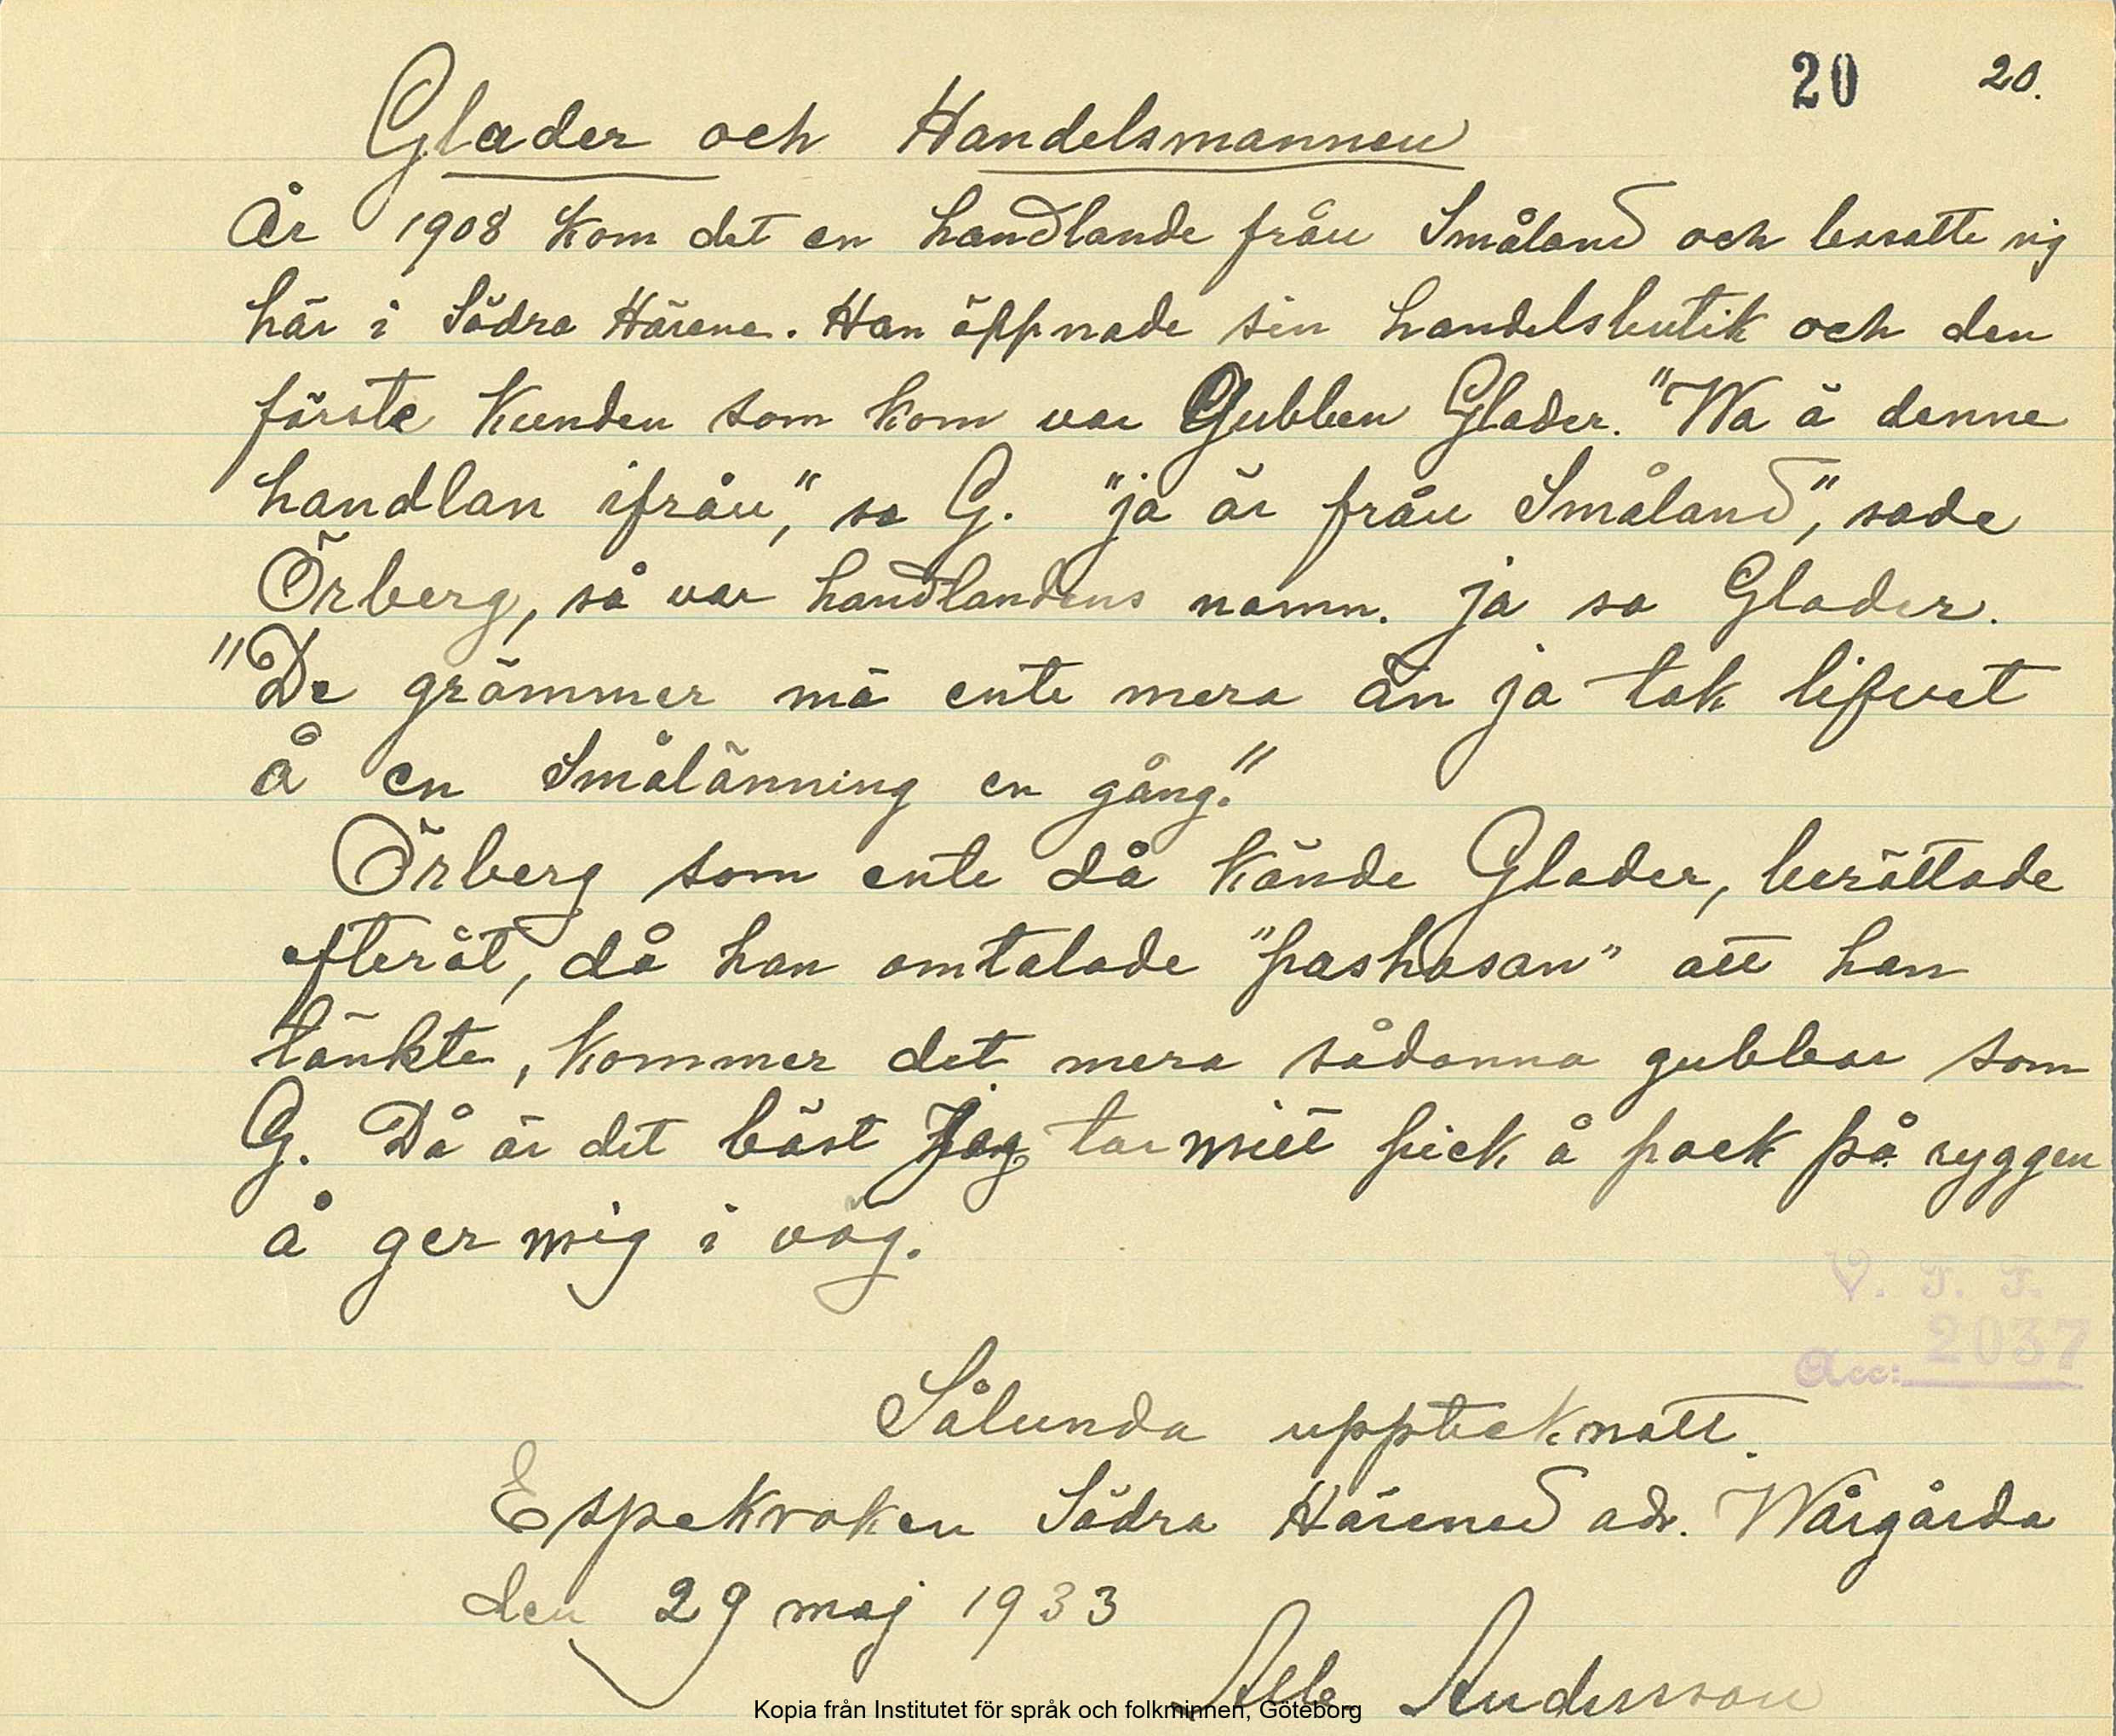 20 20.
Glader och Handelsmannen
År 1908 kom det en handlande från Småland och bosatte sig
här i Södra Härene. Han öppnade sin handelsbutik och den
förste kunden som kom var Gubben Glader. "Wa ä denne
handlan ifrån", sa G. "ja är från Småland", sade
Örberg, så var handlandens namn. ja sa Glader.
"De grämmer mä ente mera än ja tok lifvet
å en Smålänning en gång."
Örberg som ente då kände Glader, berättade
efteråt, då han omtalade "pashasan" att han
tänkte, kommer det mera sådanna gubbar som
G. Då är det bäst Jag tar mitt pick å pack på ryggen
å ger mig i väg.
V. F. F.
Acc: 2037
Sålunda upptecknatt.
Espekroken Södra Härened adr. Wårgårda
den 29 maj 1933
Andersson
Kopia från Institutet för språk och folkminnen, Göteborg